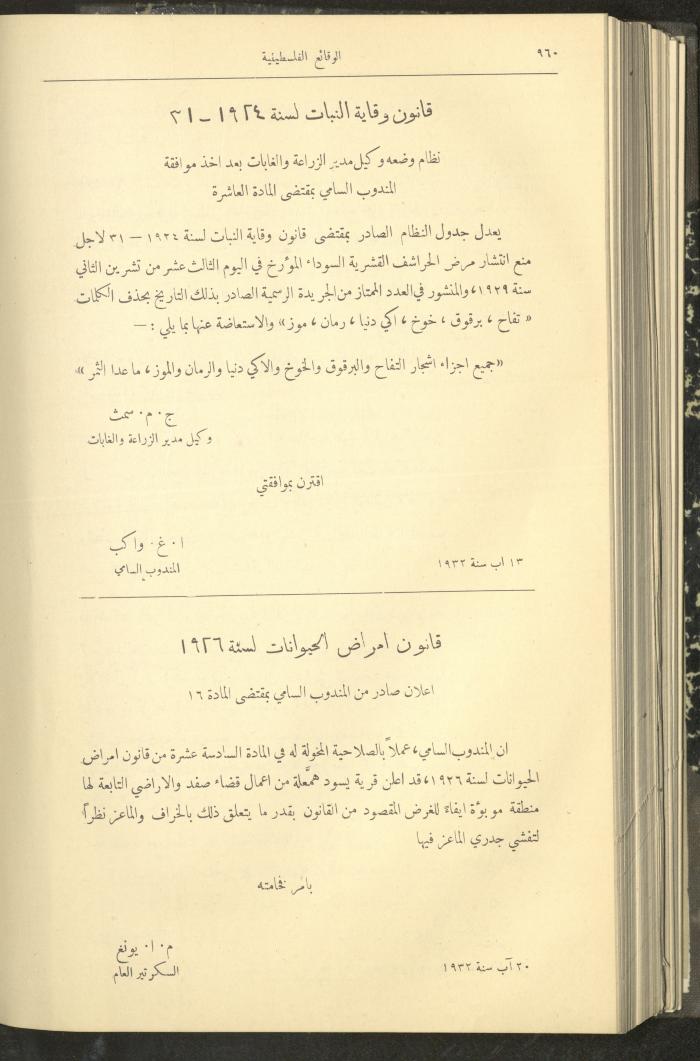 ٩٦٠
الوقائع الفلسطينية
قانون وقاية النبات لسنة ١٩٢٤ – ٣١
نظام وضعه وكيل مدير الزراعة والغابات بعد اخذ موافقة
المندوب السامي بمقتضى المادة العاشرة
يعدل جدول النظام الصادر بمقتضى قانون وقاية النبات لسنة ١٩٢٤ – ٣١ لاجل
منع انتشار مرض الحراشف القشرية السوداء المؤرخ في اليوم الثالث عشر من تشرين الثاني
سنة ١٩٢٩، والمنشور في العدد الممتاز من الجريدة الرسمية الصادر بذلك التاريخ بحذف الكلمات
« تفاح ، برقوق ، خوخ ، اكي دنيا ، رمان ، موز» والاستعاضة عنها بما يلي : —
«جميع اجزاء اشجار التفاح والبرقوق والخوخ والاكي دنيا والرمان والموز ، ما عدا الثمر »
ج ٠ م ٠ سمث
وكيل مدير الزراعة والغابات
اقترن بموافقتي
ا ٠ غ ٠ واكب
١٣ اب سنة ١٩٣٢
المندوب السامي
قانون امراض الحيوانات لسنة ١٩٢٦
اعلان صادر من المندوب السامي بمقتضى المادة ١٦
ان المندوب السامي، عملاً بالصلاحية المخولة له في المادة السادسة عشرة من قانون امراض
الحيوانات لسنة ١٩٢٦، قد اعلن قرية يسود همَّعلة من اعمال قضاء صفد والاراضي التابعة لها
منطقة موبوأة ايفاءً للغرض المقصود من القانون بقدر ما يتعلق ذلك بالخراف والماعز نظراً
لتفشي جدري الماعز فيها
بامر فخامته
م ٠ ا ٠ يونغ
٢٠ آب سنة ١٩٣٢
السكرتير العام